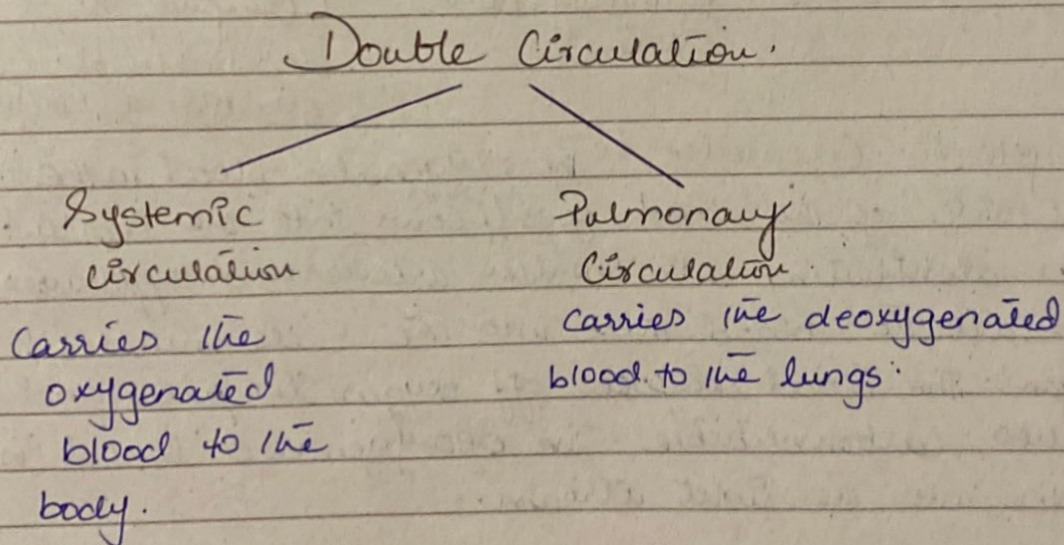 Double Circulation.
Systemic
circulation
Carries the
oxygenated
blood to the
body.
Pulmonary
Circulation.
carries the deoxygenated
blood to the lungs.